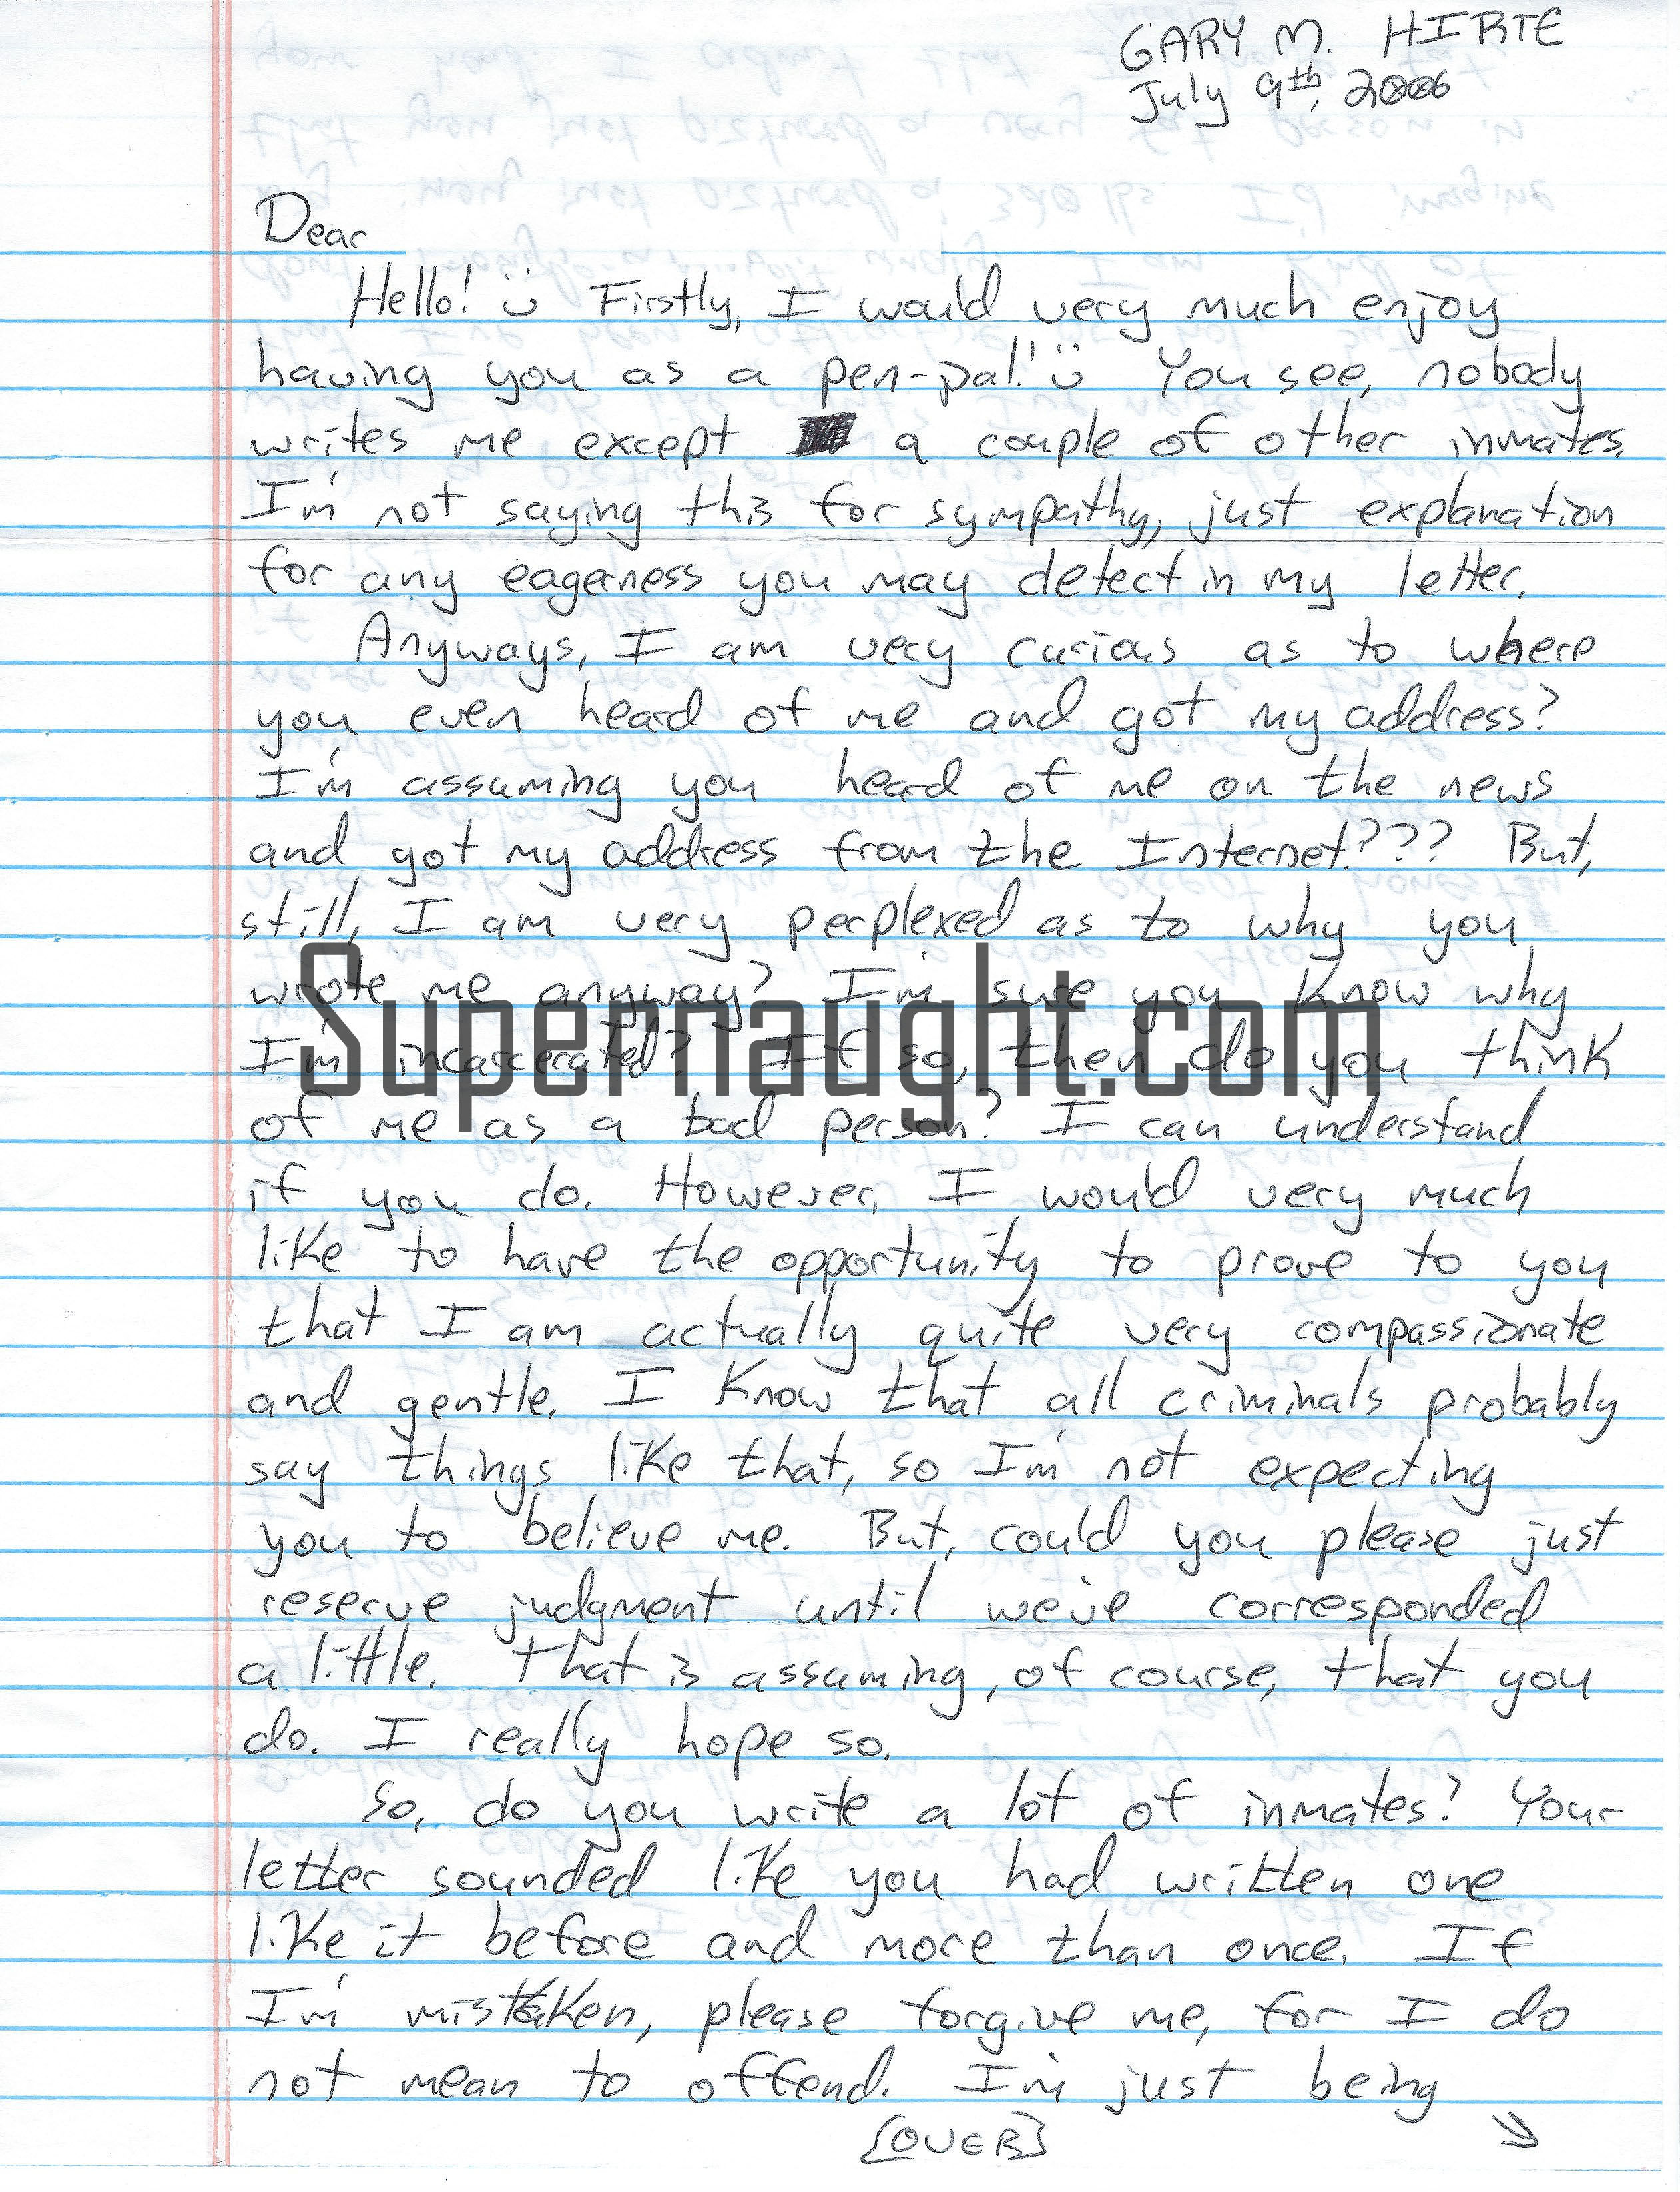 GARY M. HIRTE
July 9th, 2006
Dear
Hello! Firstly, I would very much enjoy
having you as a pen-pal! You see, nobody
writes me except a couple of other inmates.
I'm not saying this for sympathy, just explanation
for any eagerness you may detect in my letter.
Anyways, I am very curious as to where
you even heard of me and got my address?
I'm assuming you heard of me on the news
and got my address from the Internet??? But,
still, I am very perplexed as to why you
wrote me anyway? I'm sure you know why
I'm incarcerated? If so, then do you think
Supernaught.com
of me as a bad person? I can understand
if you do. However, I would very much
like to have the opportunity to prove to you
that I am actually quite very compassionate
and gentle. I know that all criminals probably
say things like that, so I'm not expecting
you to believe me. But, could you please just
reserve judgment until we've corresponded
a little. That is assuming, of course, that you
do. I really hope so.
So, do you write a lot of inmates? Your
letter sounded like you had written one
like it before and more than once. If
I'm mistaken, please forgive me, for I do
not mean to offend. I'm just being
{OVER}